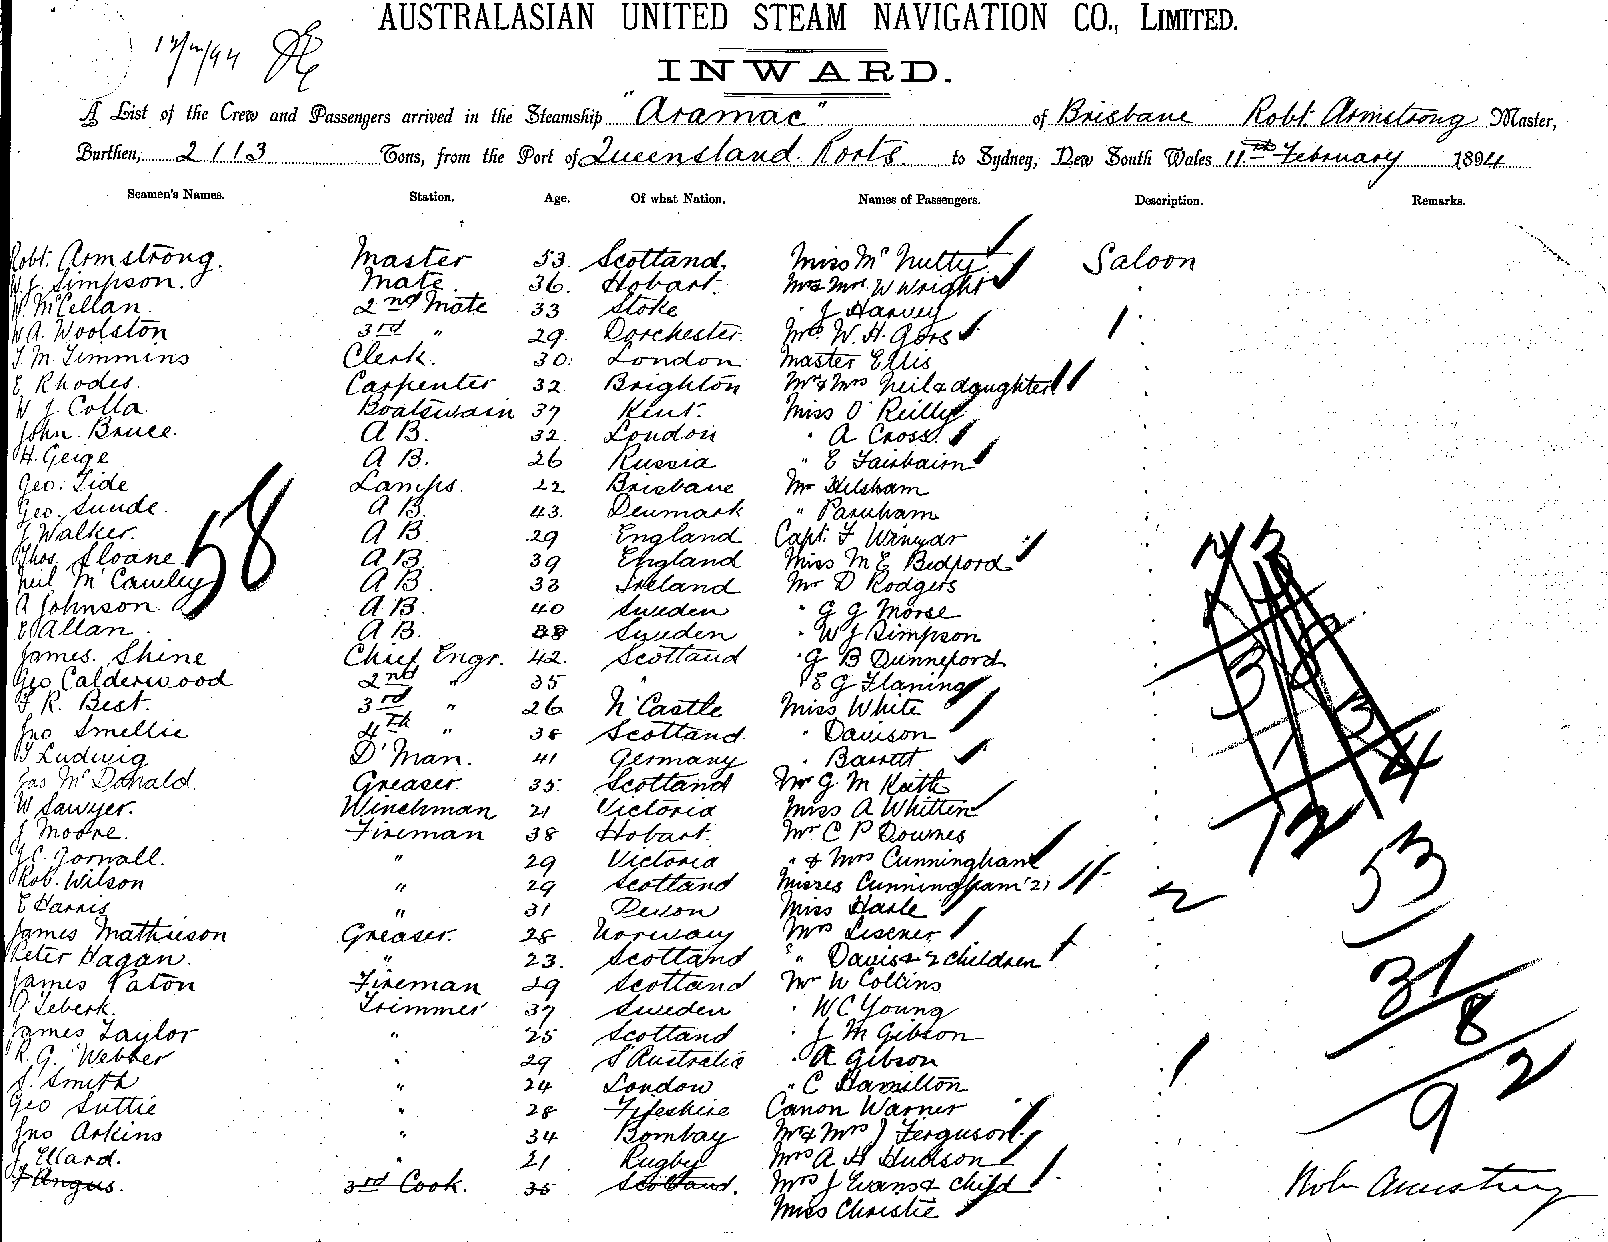 AUSTRALASIAN UNITED STEAM NAVIGATION CO., LIMITED.
INWARD.
A List of the Crew and Passengers arrived in the Steamship "Aramac" of Brisbane Robt. Armstrong Master,
Burthen, 2113 Tons, from the Port of Queensland Ports to Sydney, New South Wales 11th February 1894
Seamen's Names. Station. Age. Of what Nation. Names of Passengers. Description. Remarks.
Robt. Armstrong. Master 53 Scotland. Miss McNulty Saloon
W.J. Simpson. Mate 36. Hobart. Mr & Mrs W Wright
McCellan 2nd Mate 33 Stoke J Harvey
W A. Woolston 3rd " 29. Dorchester. Mrs W. H.
T. M. Timmins Clerk. 30. London Master Ellis
E Rhodes. Carpenter 32 Brighton Mr & Mrs Neil & daughter
W J Colla Boatswain 37 Kent. Miss O'Reilly
John Bruce. A B. 32. London " A Cross.
H. Geige A B. 26 Russia " E Fairbairn
Geo. Tide Lamps. 22 Brisbane Mr Hilsham
Geo. Sunde. A B. 43. Denmark " Parnham
J Walker. A B. 29 England Capt. F Winyar
Thos. Sloane A B. 39 England Miss M E Bedford
Neil McCawley A B. 33 Ireland Mr D Rodgers
A Johnson A B. 40 Sweden " G G Morse
E Allan A B. 38 Sweden " W J Simpson
James. Shine Chief Engr. 42. Scotland " G B Dunneford
Geo Calderwood 2nd " 35 " " E G Flaning
F R. Best. 3rd " 26 N'Castle Miss White
Jno Smellie 4th " 38 Scotland. " Davison
T Ludwig D'Man. 41 Germany " Barrett
Jas McDonald. Greaser. 35. Scotland Mr G M Keith
W Sawyer. Winchman 21 Victoria Miss A Whitten
J Moore. Fireman 38 Hobart. Mr C P Downes
J.C. Gornall. " 29 Victoria " & Mrs Cunningham
Rob. Wilson " 29 Scotland Misses Cunningham (2)
E Harris " 31 Devon Miss Harle
James Mathieson Greaser. 28 Norway Mrs Lisener
Peter Hagan. " 23. Scotland " Davis & 2 children
James Paton Fireman 29 Scotland Mr W Collins
O Leberk. Trimmer 37 Sweden " W C Young
James Taylor " 25 Scotland " J M Gibson
R. G. Webber " 29 S'Australia " A Gibson
J. Smith " 24 London " C Hamilton
Geo Suttie " 28 Fifeshire Canon Warner
Jno Arkins " 34 Bombay Mr & Mrs J Ferguson.
J Ellard. " 21 Rugby Mrs A H Hudson
J Angus. 3rd Cook. 35 Scotland. Mrs J Evans & Child
Miss Christie
58
2
53
31
8
92
Robt Armstrong